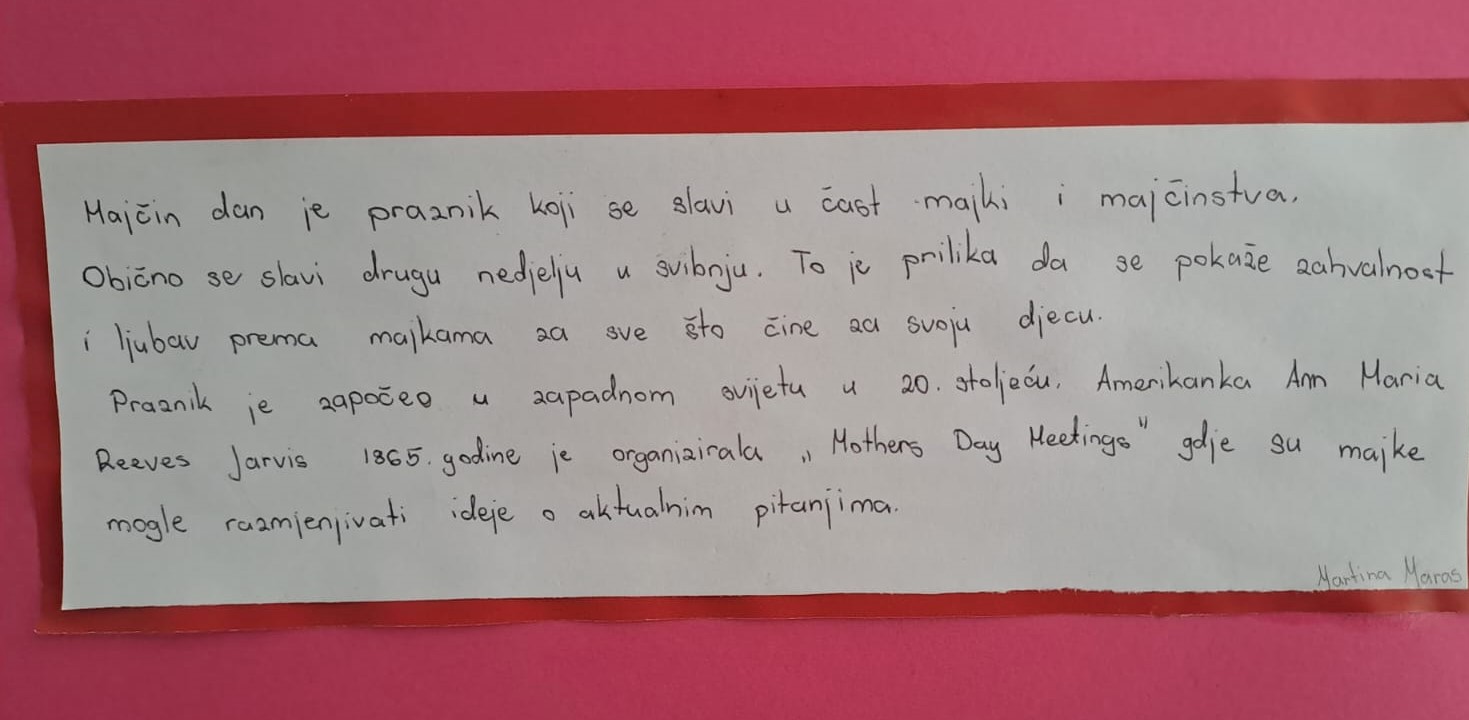 Majčin dan je praznik koji se slavi u čast majki i majčinstva.
Obično se slavi drugu nedjelju u svibnju. To je prilika da se pokaže zahvalnost
i ljubav prema majkama za sve što čine za svoju djecu.
Praznik je započeo u zapadnom svijetu u 20. stoljeću. Amerikanka Ann Maria
Reeves Jarvis 1865. godine je organizirala „Mothers Day Meetings" gdje su majke
mogle razmjenjivati ideje o aktualnim pitanjima.
Martina Maras